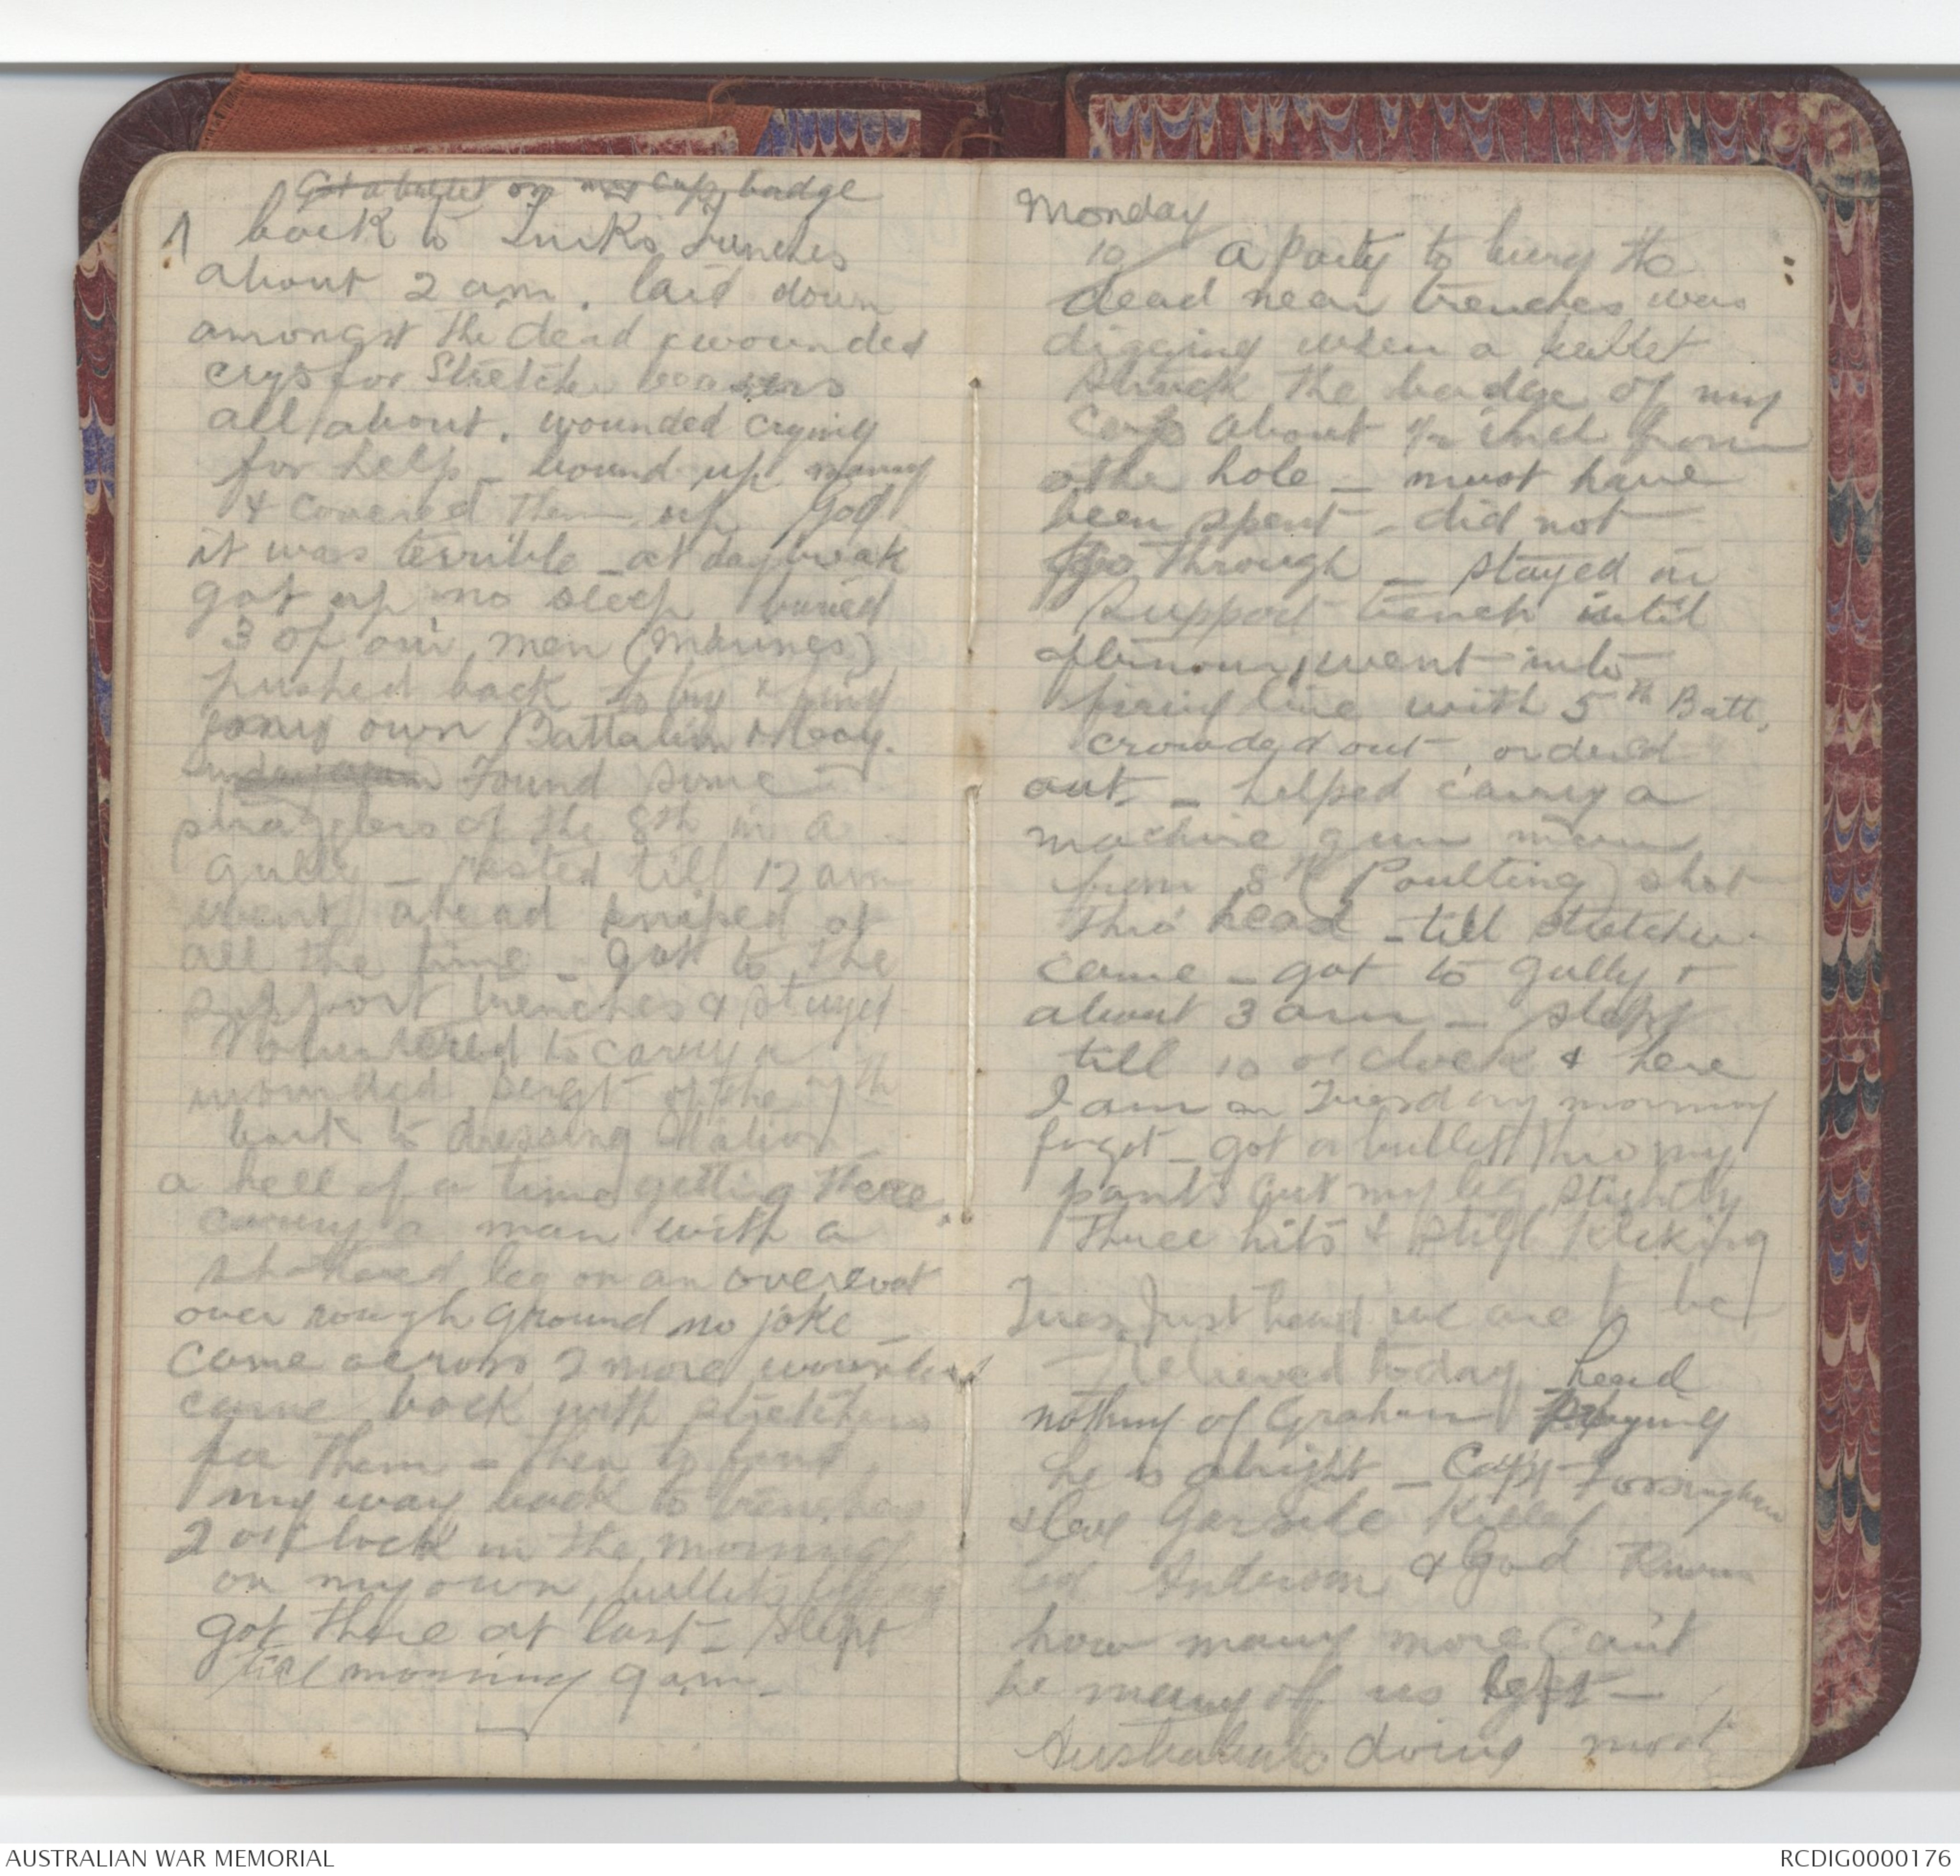 Got a bullet on my cap badge
1 back to Turks Trenches
about 2 am. laid down
amongst the dead & wounded
crys for Stretcher bearers
all about. wounded crying
for help - bound up many
& covered them up God
it was terrible - at daybreak
got up no sleep buried
3 of our men (Marines)
pushed back to try & find
my own Battalion & Coy.
found some
straglers of the 8th in a
gully - rested till 12 am
went ahead sniped at
all the time - got to the
support trenches & stayed
Volunteered to carry a
wounded Sergt of the 7th
back to dressing Station
a hell of a time getting there.
carry a man with a
shattered leg on an overcoat
over rough ground no joke -
came across 2 more wounded
came back with stretchers
for them - then to find
my way back to trenches
2 o'clock in the morning
on my own, bullets
got there at last - slept
till morning 9 am -
Monday
10/ a party to bury the
dead near trenches was
digging when a bullet
struck the badge of my
cap about ½ inch from
other hole - must have
been spent - did not
go through - stayed in
Support trench until
afternoon, went into
firing line with 5th Batt,
crowded out ordered
out. - helped carry a
machine gun man
from 8th (Poulting) shot
thro' head - till stretcher
came - got to gully
about 3 am - slept
till 10 o'clock & here
I am on Tuesday morning
forgot - got a bullet thro my
pants cut my leg slightly
three hits & still kicking
Tues. Just heard we are to be
relieved today heard
nothing of Graham praying
he is alright - Capt
Garside killed
Anderson & God knows
how many more can't
be many of us left -
Australians doing most
AUSTRALIAN WAR MEMORIAL
RCDIG0000176